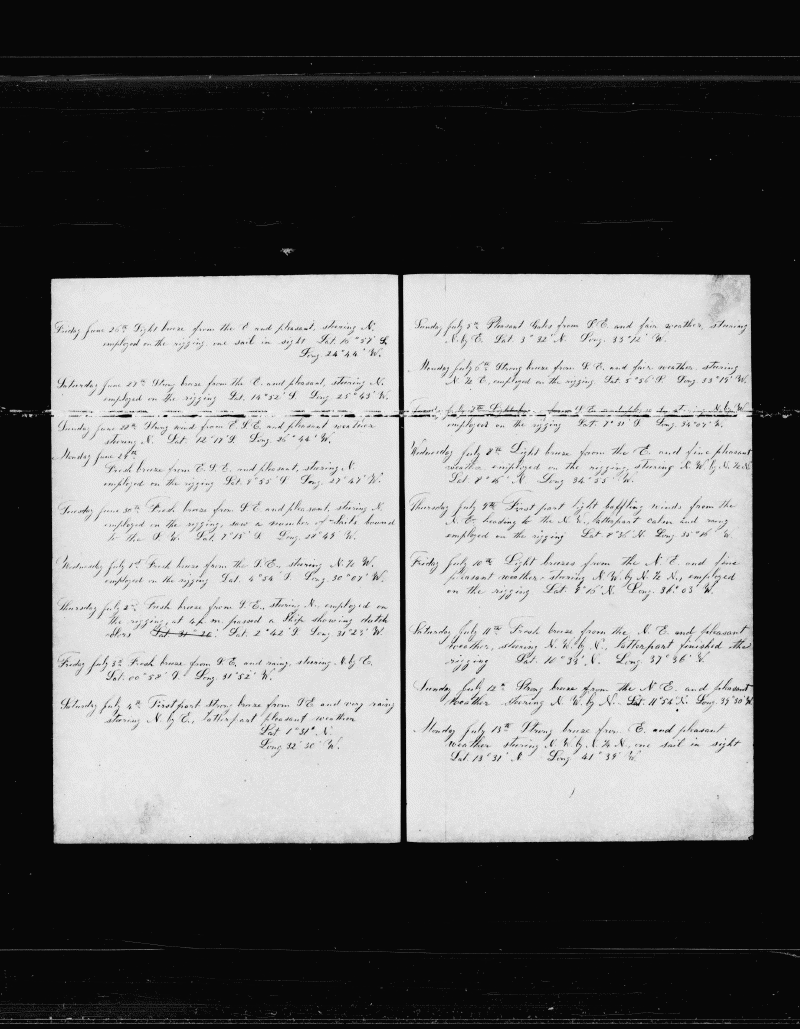 Friday June 26th Light breeze from the E and pleasant, steering N.
employed on the rigging, one sail in sight Lat. 16° 57' S.
Long 24° 44' W.
Saturday June 27th Strong breeze from the E. and pleasant, steering N.
employed on the rigging Lat. 14° 52' S Long. 25° 43' W.
Sunday June 28th Strong wind from E.S.E. and pleasant weather
steering N. Lat. 12° 17' S Long. 26° 44' W.
Monday June 29th
Fresh breeze from E.S.E. and pleasant, steering N.
employed on the rigging Lat. 9° 55' S Long. 27° 47' W.
Tuesday June 30th Fresh breeze from S.E. and pleasant, steering N.
employed on the rigging, saw a number of bound
to the S.W. Lat. 7° 15' S Long. 28° 49' W.
Wednesday July 1st Fresh breeze from the S.E., steering N.½ W.
employed on the rigging Lat. 4° 54' S Long 30° 07' W.
Thursday July 2d Fresh breeze from S.E., steering N., employed on
the rigging, at 4 p.m. passed a Ship showing dutch
Lat. 2° 42' S Long 31° 23' W
Friday July 3d Fresh breeze from S.E, and rainy, steering N. by E.
Lat. 00° 58' S Long 31° 52' W.
Saturday July 4th First part strong breeze from S.E and very rainy
steering N. by E., latter part pleasant weather
Lat 1° 31' N.
Long 32° 30' W.
Sunday July 5th Pleasant Gales from S.E. and fair weather, steering
N. by E. Lat. 3° 32' N. Long. 33° 12' W.
Monday July 6th Strong breeze from S.E. and fair weather, steering
N.½ E., employed on the rigging Lat. 5° 56' N. Long 33° 19' W.
July 7th from S.E. steering N.
employed on the rigging Lat. 7° 31' Long. 34° 07' W.
Wednesday July 8th Light breeze from the E. and fine pleasant
weather employed on the rigging, steering N.W. by N.½ N.
Lat. 8° 16' N Long 34° 55' W.
Thursday July 9th First part light baffling winds from the
N.E. heading to the N.W., latterpart calm and rainy
employed on the rigging Lat 8° 36' N. Long. 35° 16' W.
Friday July 10th Light breezes from the N.E. and fine
pleasant weather steering N.W. by N.½ N., employed
on the rigging Lat 9° 15' N Long. 36° 03' W.
Saturday July 11th Fresh breeze from the N.E. and pleasant
weather, steering N.W. by N., latterpart finished the
rigging Lat 10° 33' N. Long. 37° 36' W.
Sunday July 12th Strong breeze from the N.E. and pleasant
weather steering N.W. by N. Lat. 11° 54' N. Long. 39° 30' W
Monday July 13th Strong breeze from E. and pleasant
weather steering N.W. by N.½ N., one sail in sight
Lat. 13° 31' N Long 41° 39' W.